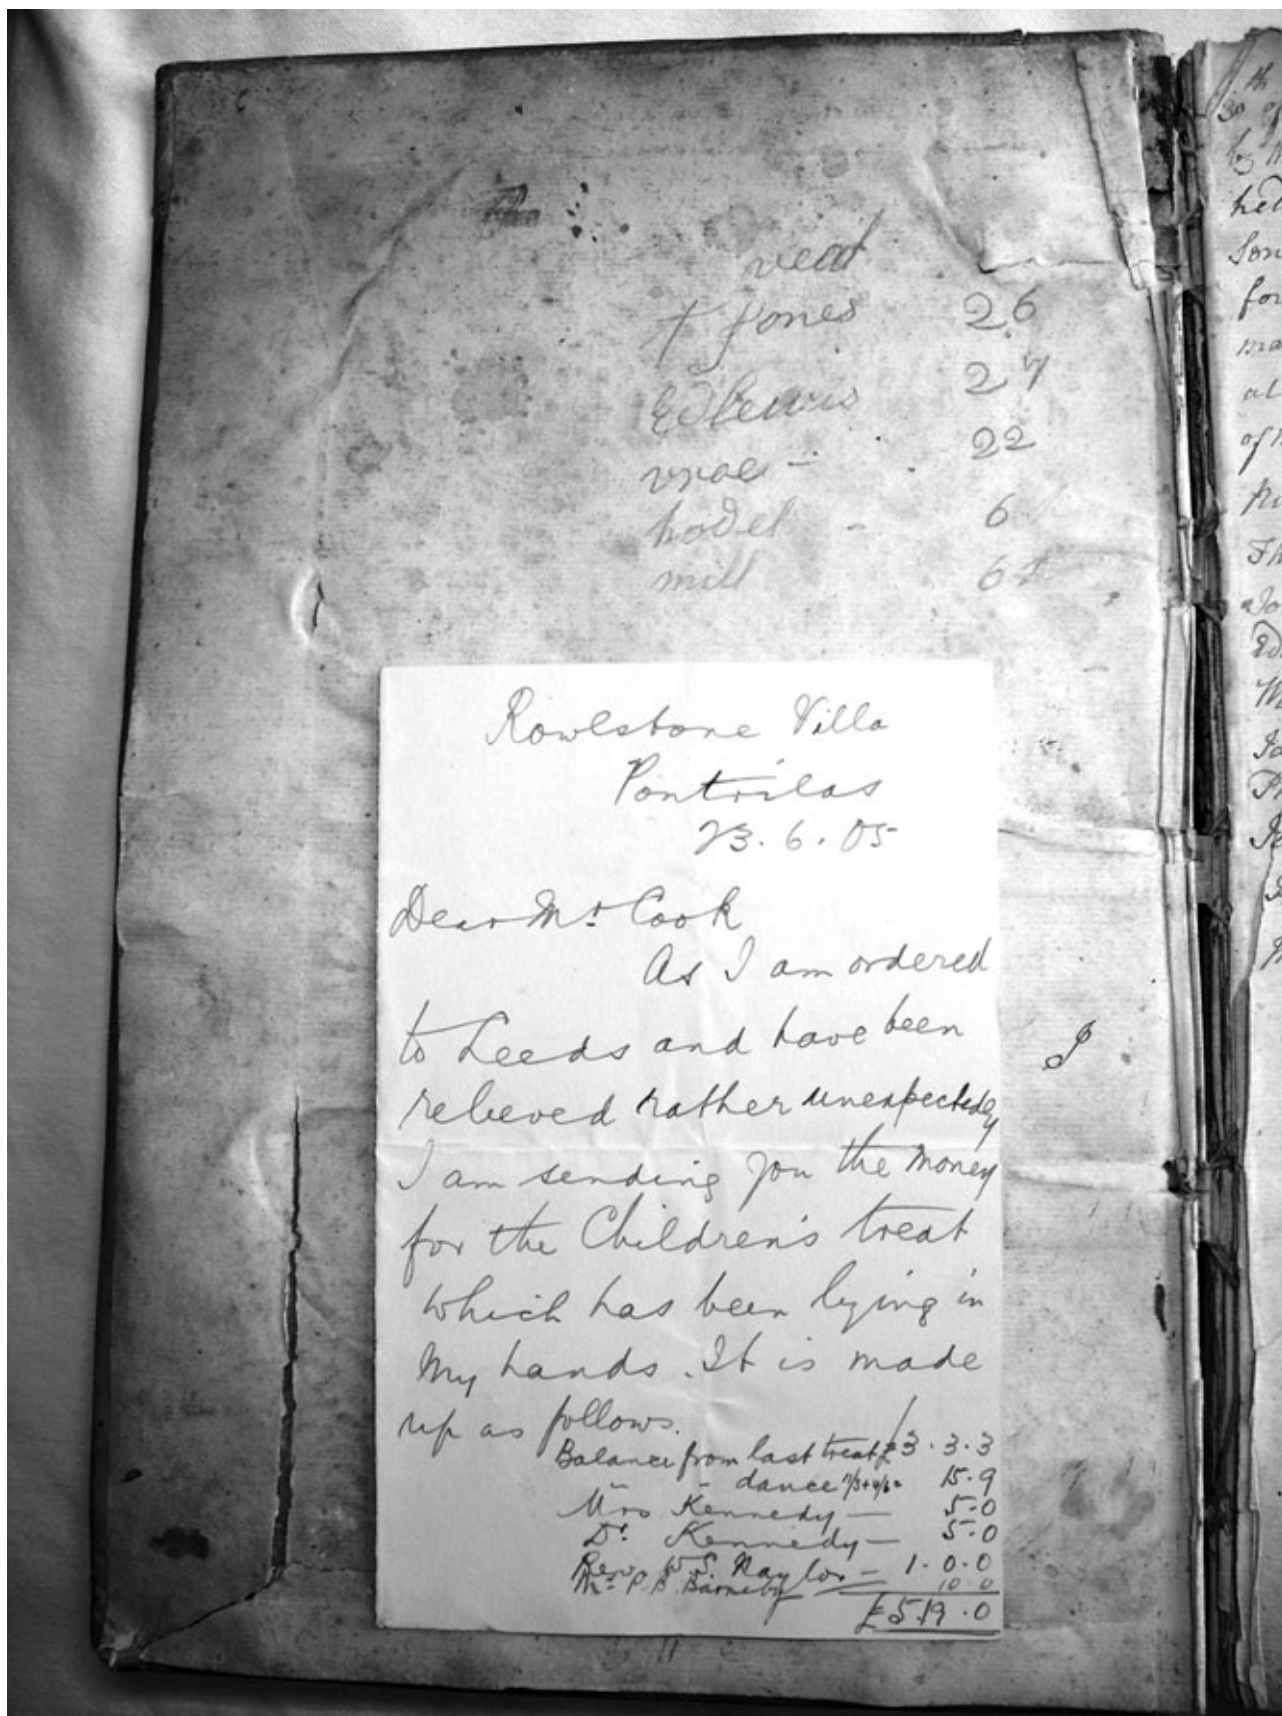 veat
T Jones 26
Ed Lewis 27
vrae - 22
hodel - 6
mill 6
Rowlstone Villa
Pontrilas
23.6.05
Dear Mr. Cook
As I am ordered
to Leeds and have been
relieved rather unexpectedly
I am sending you the money
for the Children's treat
which has been lying in
my hands. It is made
up as follows.
Balance from last treat £3.3.3
" - dance 15.9
Mrs Kennedy — 5.0
Dr. Kennedy — 5.0
Rev. W.S. Naylor — 1.0.0
Mr. P. B. Barneby 10.0
£5.19.0
30th of
by
for
of